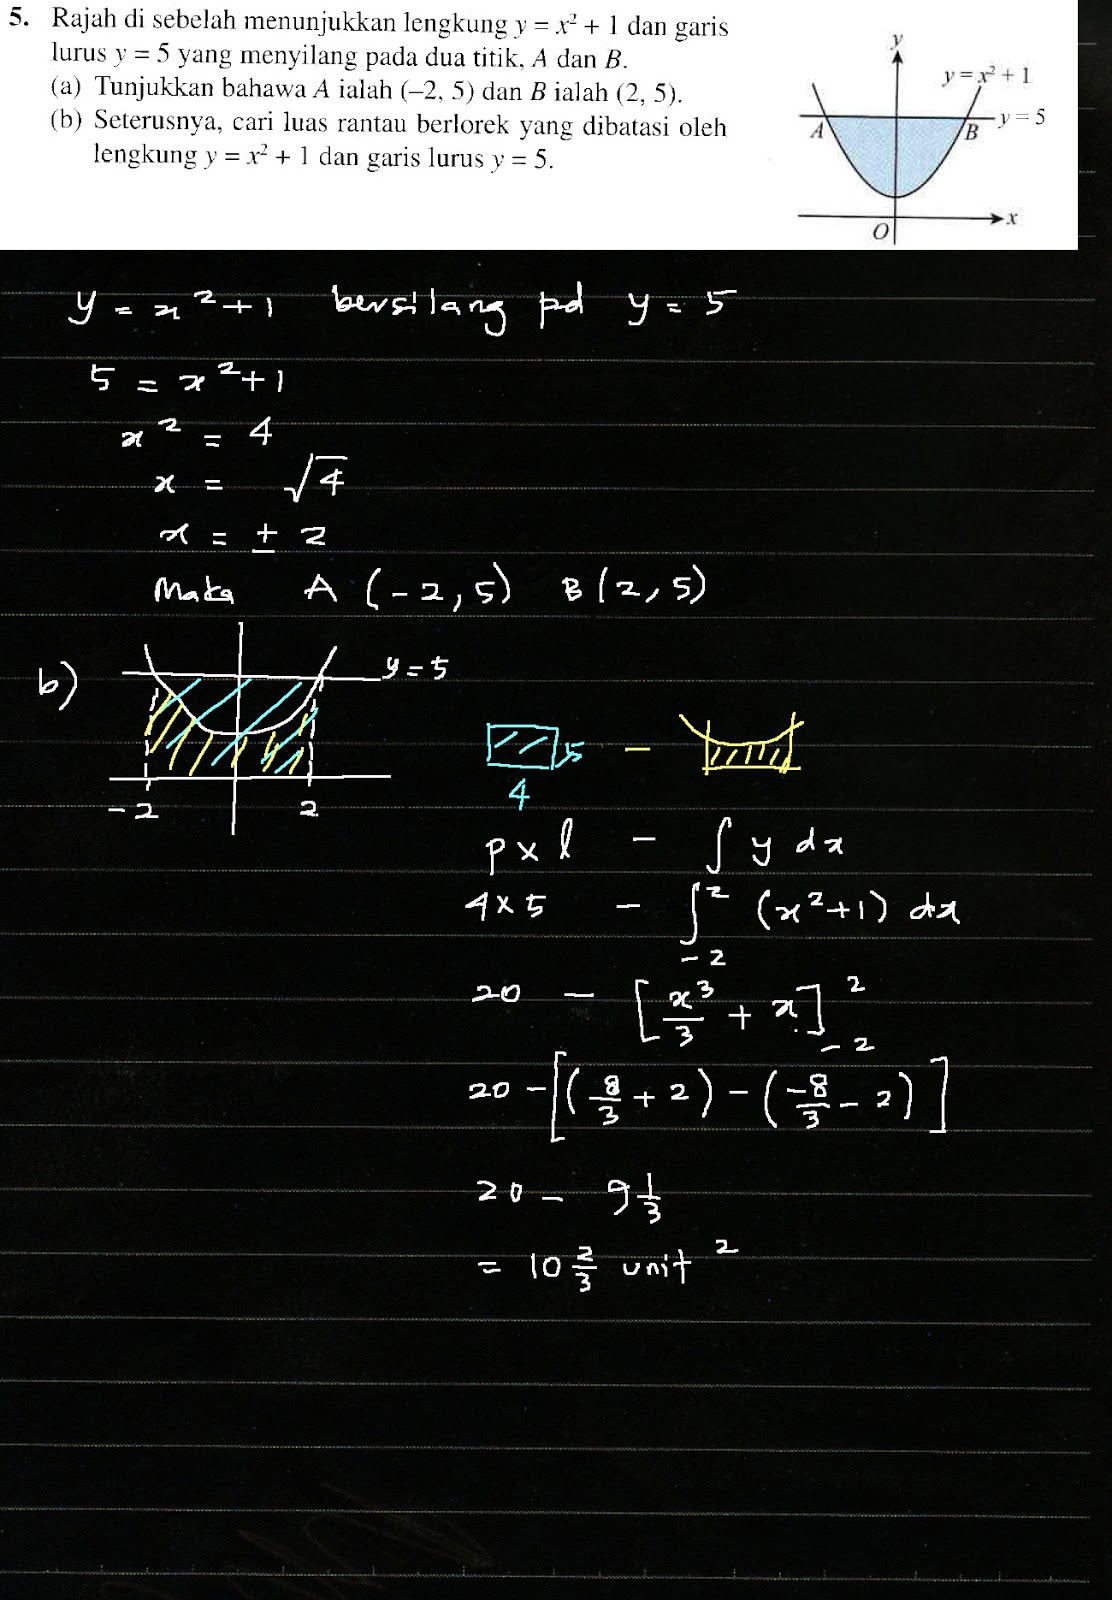 5. Rajah di sebelah menunjukkan lengkung y = x² + 1 dan garis
lurus y = 5 yang menyilang pada dua titik, A dan B.
(a) Tunjukkan bahawa A ialah (–2, 5) dan B ialah (2, 5).
(b) Seterusnya, cari luas rantau berlorek yang dibatasi oleh
lengkung y = x² + 1 dan garis lurus y = 5.
y
y = x² + 1
y = 5
A
B
O
x
y = x² + 1 bersilang pd y = 5
5 = x² + 1
x² = 4
x = √4
x = ± 2
Maka A (-2, 5) B (2, 5)
b)
y = 5
-2
2
5 -
4
p x l - ∫ y dx
4 x 5 - ∫₋₂² (x² + 1) dx
20 - [x³/3 + x]₋₂²
20 - [(8/3 + 2) - (-8/3 - 2)]
20 - 9 1/3
= 10 2/3 unit ²